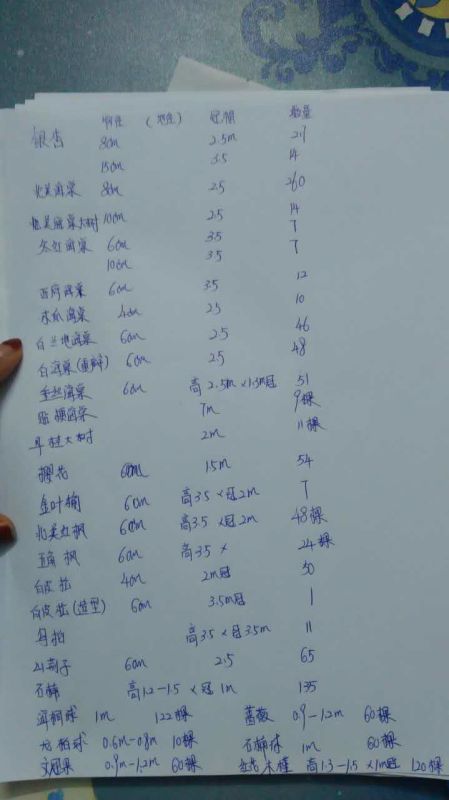 胸径 (地径) 冠幅 数量
银杏 8cm 2.5m 27
15cm 3.5 14
北美海棠 8cm 2.5 260
北美海棠大树 10cm 2.5 14
冬红海棠 6cm 3.5 7
10cm 3.5 7
西府海棠 6cm 3.5 12
木瓜海棠 4cm 2.5 10
白兰地海棠 6cm 2.5 46
白海棠(重瓣) 6cm 2.5 48
垂丝海棠 6cm 高2.5m×1.5m冠 51
贴梗海棠 7m 9棵
丹桂大树 2m 11棵
樱花 6cm 1.5m 54
金叶榆 6cm 高3.5×冠2m 7
北美红枫 6cm 高3.5×冠2m 48棵
五角枫 6cm 高3.5× 24棵
白皮松 4cm 2m冠 50
白皮松(造型) 6cm 3.5m冠 1
高3.5×冠3.5m 11
山荆子 6cm 2.5 65
石楠 高1.2-1.5×冠1m 135
海桐球 1m 122棵 蔷薇 0.9-1.2m 60棵
龙柏球 0.6m-0.8m 10棵 石楠球 1m 60棵
文冠果 0.9m-1.2m 60棵 木槿 高1.3-1.5×1m冠 120棵